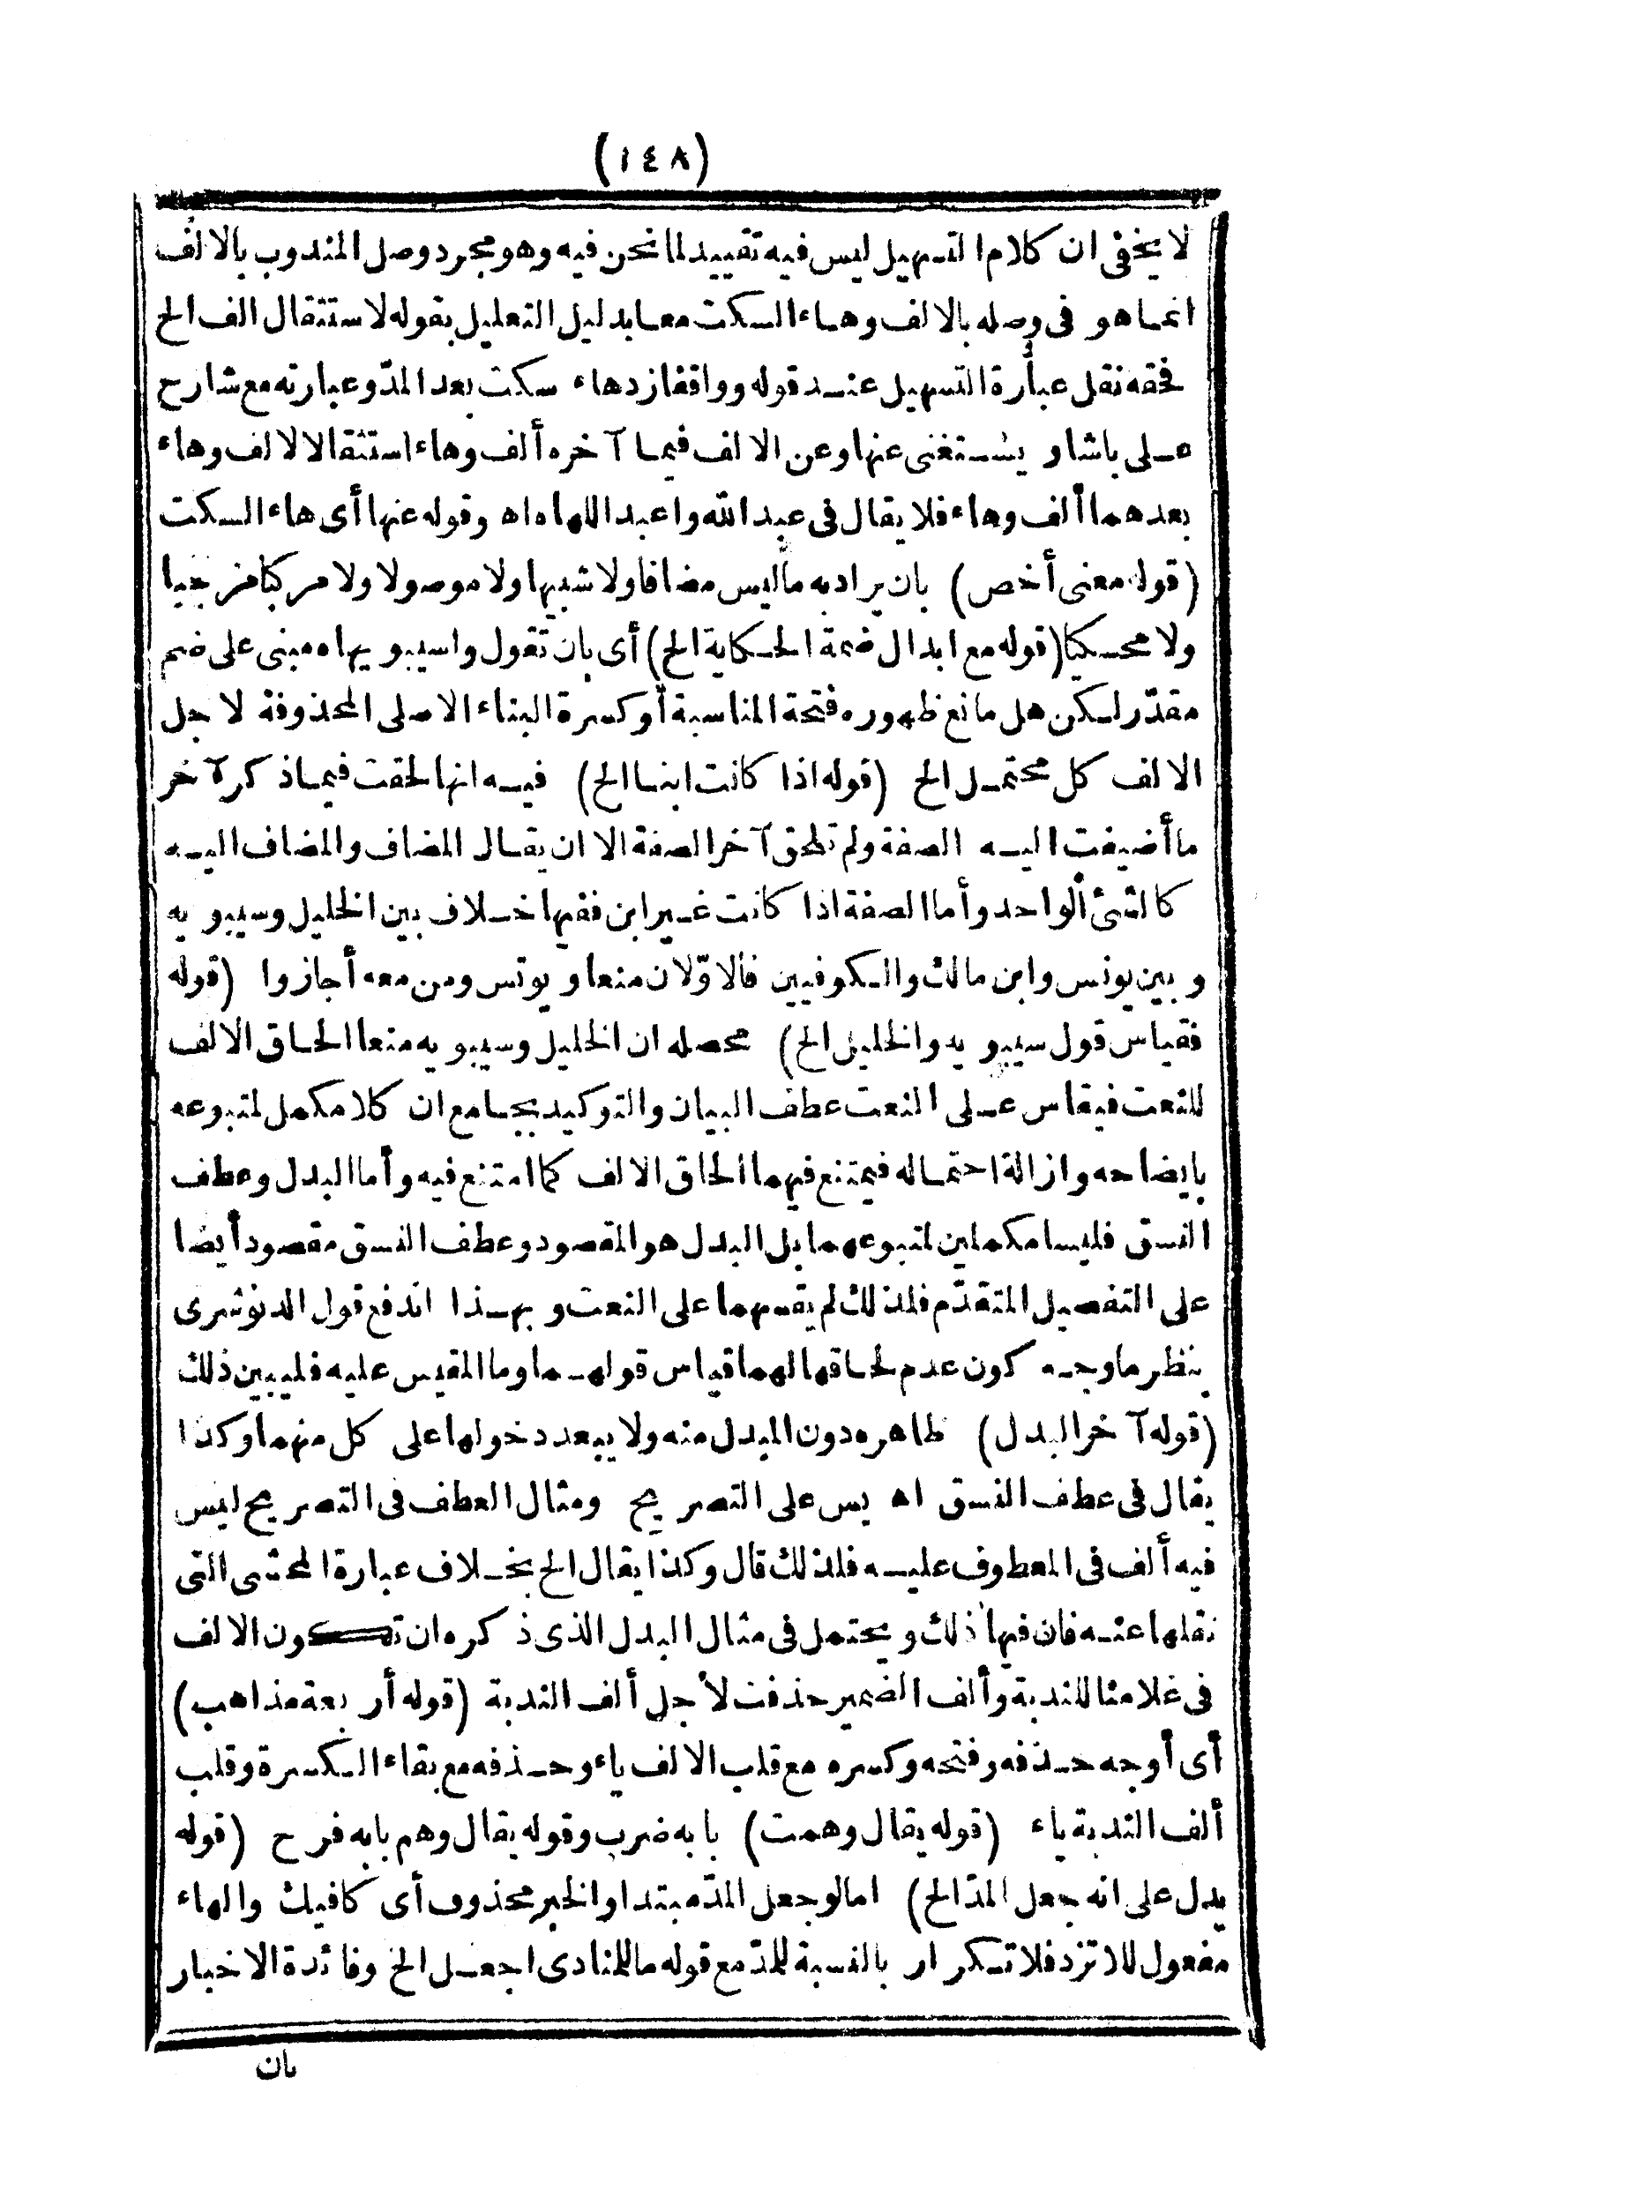 (١٤٨)
لا يخفى ان كلام التسهيل ليس فيه تقييد لما نحن فيه وهو مجرد وصل المندوب بالالف
انما هو فى وصله بالالف وهاء السكت معا بدليل التعليل بقوله لاستثقال الف الخ
فحقه نقل عبارة التسهيل عند قوله وواقفا زد هاء سكت بعد المدّ وعبارته مع شارح
على باشا ويستغنى عنها وعن الالف فيما آخره ألف وهاء استثقالا لالف وهاء
بعدهما ألف وهاء فلا يقال فى عبد الله واعبد اللهاه اه وقوله عنها أى هاء السكت
(قوله معنى أخص) بان يراد به ما ليس مضافا ولا شبيها ولا موصولا ولا مركبا مزجيا
ولا محكيا (قوله مع ابدال ضمة الحكاية الخ) أى بان تقول واسيبويهاه مبنى على ضم
مقدّر لكن هل مانع ظهوره فتحة المناسبة أو كسرة البناء الاصلى المحذوفة لاجل
الالف كل محتمل الخ (قوله اذا كانت ابنا الخ) فيه انها لحقت فيما ذكر آخر
ما أضيفت اليه الصفة ولم تلحق آخر الصفة الا ان يقال المضاف والمضاف اليه
كالشئ الواحد وأما الصفة اذا كانت غير ابن ففيها خلاف بين الخليل وسيبويه
وبين يونس وابن مالك والكوفيين فالاوّلان منعا ويونس ومن معه أجازوا (قوله
فقياس قول سيبويه والخليل الخ) محصله ان الخليل وسيبويه منعا الحاق الالف
للنعت فيقاس على النعت عطف البيان والتوكيد بجامع ان كلا مكمل لمتبوعه
بايضاحه وازالة احتماله فيمتنع فيهما الحاق الالف كما امتنع فيه وأما البدل وعطف
النسق فليسا مكملين لمتبوعهما بل البدل هو المقصود وعطف النسق مقصود أيضا
على التفصيل المتقدّم فلذلك لم يقسهما على النعت وبهذا اندفع قول الدنوشرى
ينظر ما وجه كون عدم لحاقها لهما قياس قولهما وما المقيس عليه فليبين ذلك
(قوله آخر البدل) ظاهره دون المبدل منه ولا يبعد دخولها على كل منهما وكذا
يقال فى عطف النسق اه يس على التصريح ومثال العطف فى التصريح ليس
فيه ألف فى المعطوف عليه فلذلك قال وكذا يقال الخ بخلاف عبارة المحشى التى
نقلها عنه فان فيها ذلك ويحتمل فى مثال البدل الذى ذكره ان تكون الالف
فى غلامنا للندبة وألف الضمير حذفت لأجل ألف الندبة (قوله أربعة مذاهب)
أى أوجه حذفه وفتحه وكسره مع قلب الالف ياء وحذفه مع بقاء الكسرة وقلب
ألف الندبة ياء (قوله يقال وهمت) بابه ضرب وقوله يقال وهم بابه فرح (قوله
يدل على انه جعل المدّ الخ) اما لو جعل المدّ مبتدا والخبر محذوف أى كافيك والهاء
مفعول للاتزد فلا تكرار بالنسبة للمدّ مع قوله ما للمنادى اجعل الخ وفائدة الاخبار
بان